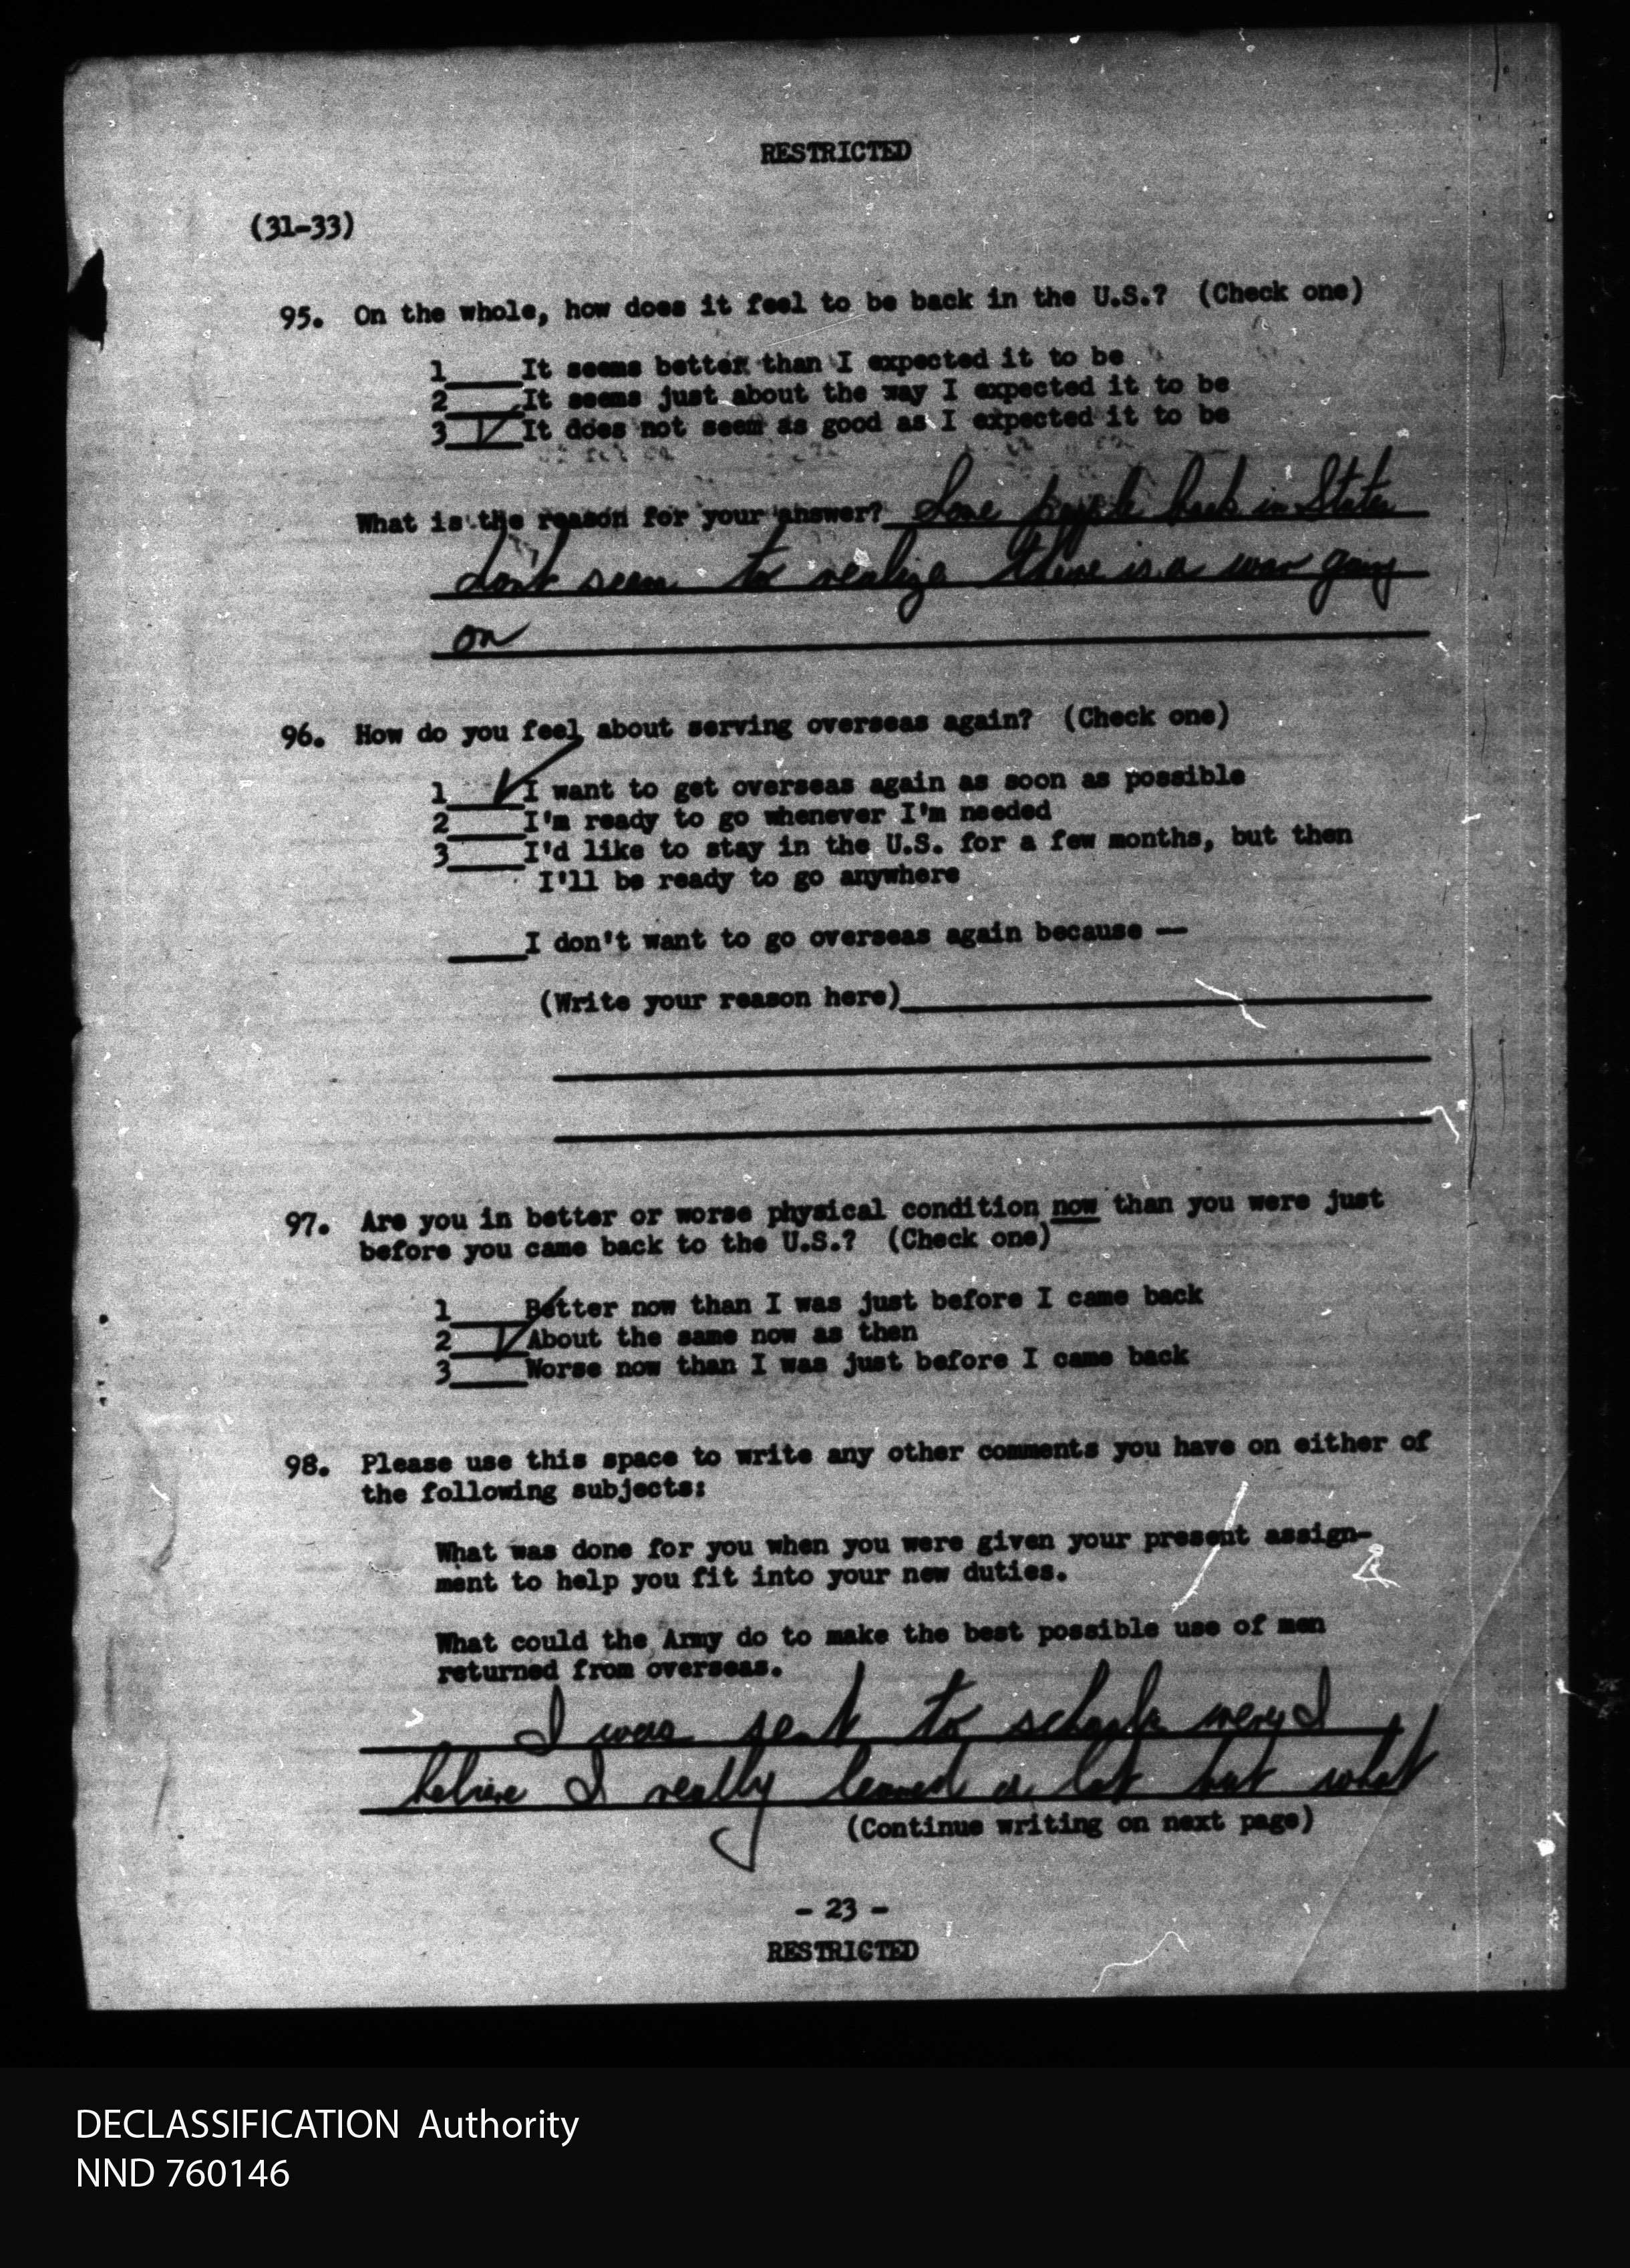 RESTRICTED
(31-33)
95. On the whole, how does it feel to be back in the U.S.? (Check one)
1____It seems better than I expected it to be
2____It seems just about the way I expected it to be
3_✓_It does not seem as good as I expected it to be
What is the reason for your answer? Some people back in States
don't seem to realize there is a war going
on
96. How do you feel about serving overseas again? (Check one)
1_✓_I want to get overseas again as soon as possible
2____I'm ready to go whenever I'm needed
3____I'd like to stay in the U.S. for a few months, but then
I'll be ready to go anywhere
____I don't want to go overseas again because —
(Write your reason here)
97. Are you in better or worse physical condition now than you were just
before you came back to the U.S.? (Check one)
1____Better now than I was just before I came back
2_✓_About the same now as then
3____Worse now than I was just before I came back
98. Please use this space to write any other comments you have on either of
the following subjects:
What was done for you when you were given your present assign-
ment to help you fit into your new duties.
What could the Army do to make the best possible use of men
returned from overseas.
I was sent to I
believe I really learned a lot but what
(Continue writing on next page)
- 23 -
RESTRICTED
DECLASSIFICATION Authority
NND 760146